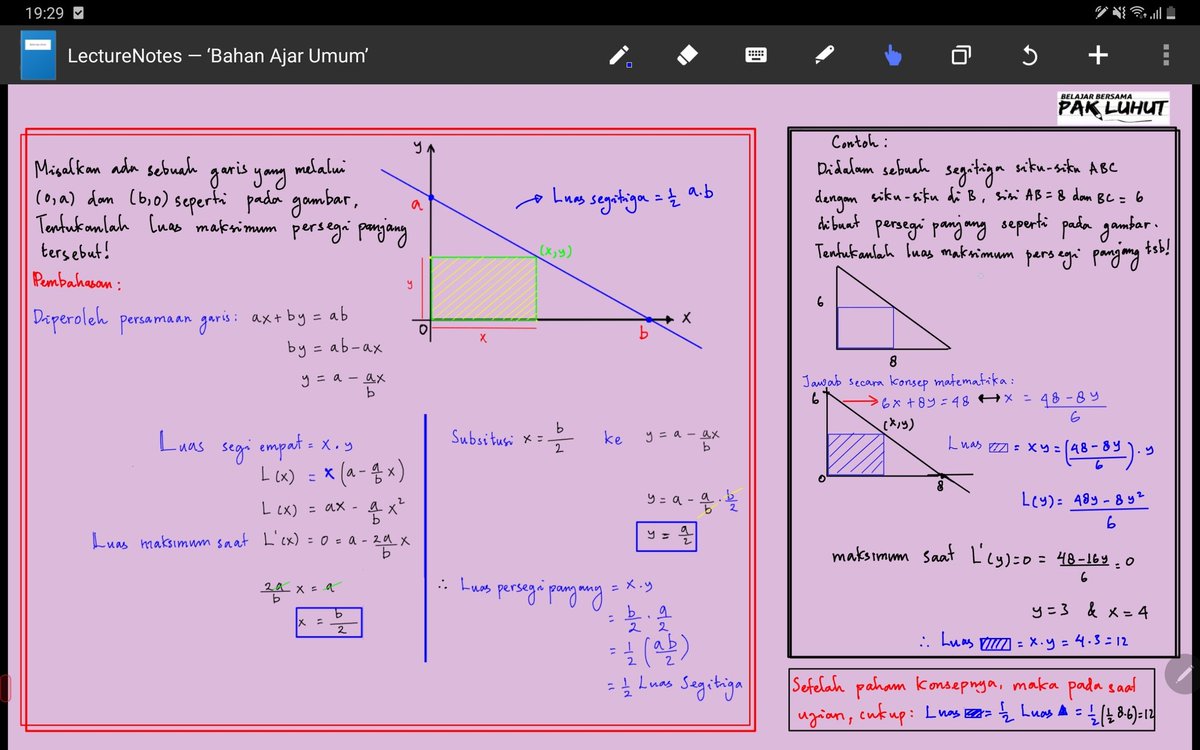 19:29
LectureNotes — 'Bahan Ajar Umum'
BELAJAR BERSAMA
PAK LUHUT
Misalkan ada sebuah garis yang melalui
(0,a) dan (b,0) seperti pada gambar,
Tentukanlah luas maksimum persegi panjang
tersebut!
Pembahasan:
Diperoleh persamaan garis: ax + by = ab
by = ab - ax
y = a - ax/b
y
a
Luas segitiga = 1/2 a.b
(x,y)
y
0
x
b
x
Luas segi empat = x.y
L(x) = x (a - a/b x)
L(x) = ax - a/b x²
Luas maksimum saat L'(x) = 0 = a - 2a/b x
2a/b x = a
x = b/2
Subsitusi x = b/2 ke y = a - ax/b
y = a - a/b . b/2
y = a/2
∴ Luas persegi panjang = x.y
= b/2 . a/2
= 1/2 (ab/2)
= 1/2 Luas Segitiga
Contoh:
Didalam sebuah segitiga siku-siku ABC
dengan siku-siku di B, sisi AB = 8 dan BC = 6
dibuat persegi panjang seperti pada gambar.
Tentukanlah luas maksimum persegi panjang tsb!
6
8
Jawab secara konsep matematika:
6
→ 6x + 8y = 48 ↔ x = 48 - 8y/6
(x,y)
0
8
Luas = xy = (48 - 8y/6) . y
L(y) = 48y - 8y²/6
maksimum saat L'(y) = 0 = 48 - 16y/6 = 0
y = 3 & x = 4
∴ Luas = x.y = 4.3 = 12
Setelah paham konsepnya, maka pada saat
ujian, cukup: Luas = 1/2 Luas ▲ = 1/2 (1/2 8.6) = 12